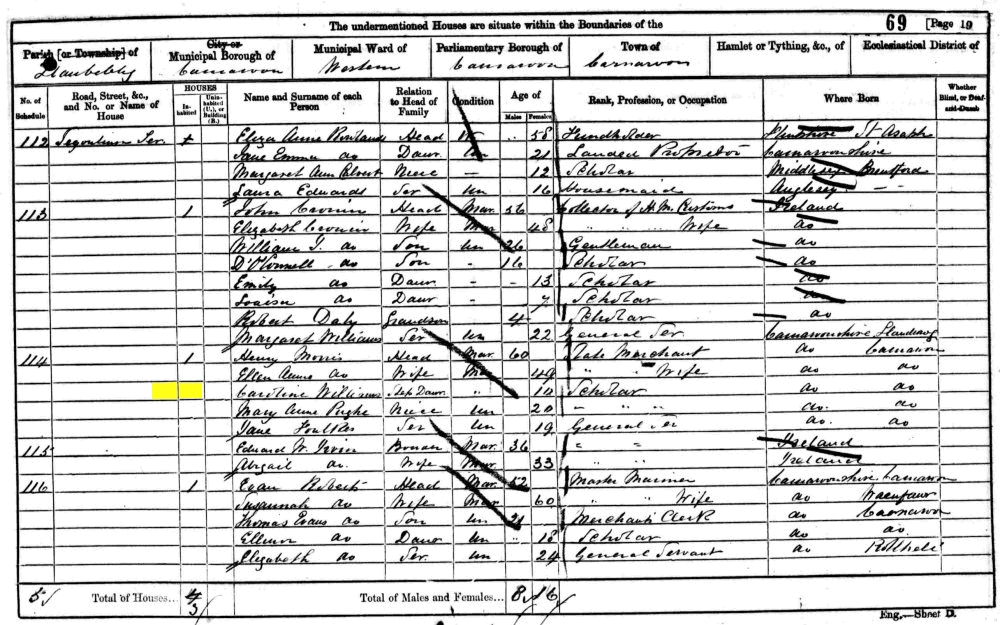 The undermentioned Houses are situate within the Boundaries of the 69 [Page 19
Parish [or Township] of Llanbeblig
City or Municipal Borough of Carnarvon
Municipal Ward of Western
Parliamentary Borough of Carnarvon
Town of Carnarvon
Hamlet or Tything, &c., of
Ecclesiastical District of
No. of Schedule
Road, Street, &c., and No. or Name of House
HOUSES
In-habited
Unin-habited (U.), or Building (B.)
Name and Surname of each Person
Relation to Head of Family
Condition
Age of
Males
Females
Rank, Profession, or Occupation
Where Born
Whether Blind, or Deaf-and-Dumb
112 Segontium Ter 1 Eliza Anne Rowlands Head 58 Fundholder St Asaph
Jane Emma do Daur Un 21 Landed Proprietor Carnarvonshire
Margaret Ann Niece — 12 Scholar Middlesex Brentford
Laura Edwards Ser Un 16 Housemaid Anglesey — —
113 1 John Cronin Head Mar 56 Collector of H. M. Customs Ireland
Elizabeth Cronin Wife Mar 48 " " Wife do
William J. do Son Un 26 Gentleman do
D'O'Connell do Son - 16 Scholar do
Emily do Daur - - 13 Scholar do
Louisa do Daur - 7 Scholar do
Robert Daly Grandson 4 Scholar do
Margaret Williams Ser Un 22 General Ser Carnarvonshire
114 1 Henry Morris Head Mar 60 Slate Merchant do Carnarvon
Ellen Anne do Wife Mar 49 " " Wife do do
Caroline Williams Step Daur " 14 Scholar do do
Mary Anne Pughe Niece Un 20 " " " do. do
Jane Foulkes Ser Un 19 General Ser do. do
115 Edward W. Irvin Mar 36 " " Ireland
Abigail do. Wife Mar 33 " " " Ireland
116 1 Evan Roberts Head Mar 52 Master Mariner Carnarvonshire Carnarvon
Susannah do Wife Mar 60 " " Wife do Waenfawr
Thomas Evans do Son Un 21 Merchants Clerk do Carnarvon
Ellenor do Daur Un " 18 Scholar do do.
Elizabeth do Ser. Un 24 General Servant do
5 Total of Houses... 4/3 Total of Males and Females... 8 16
Eng.—Sheet D.